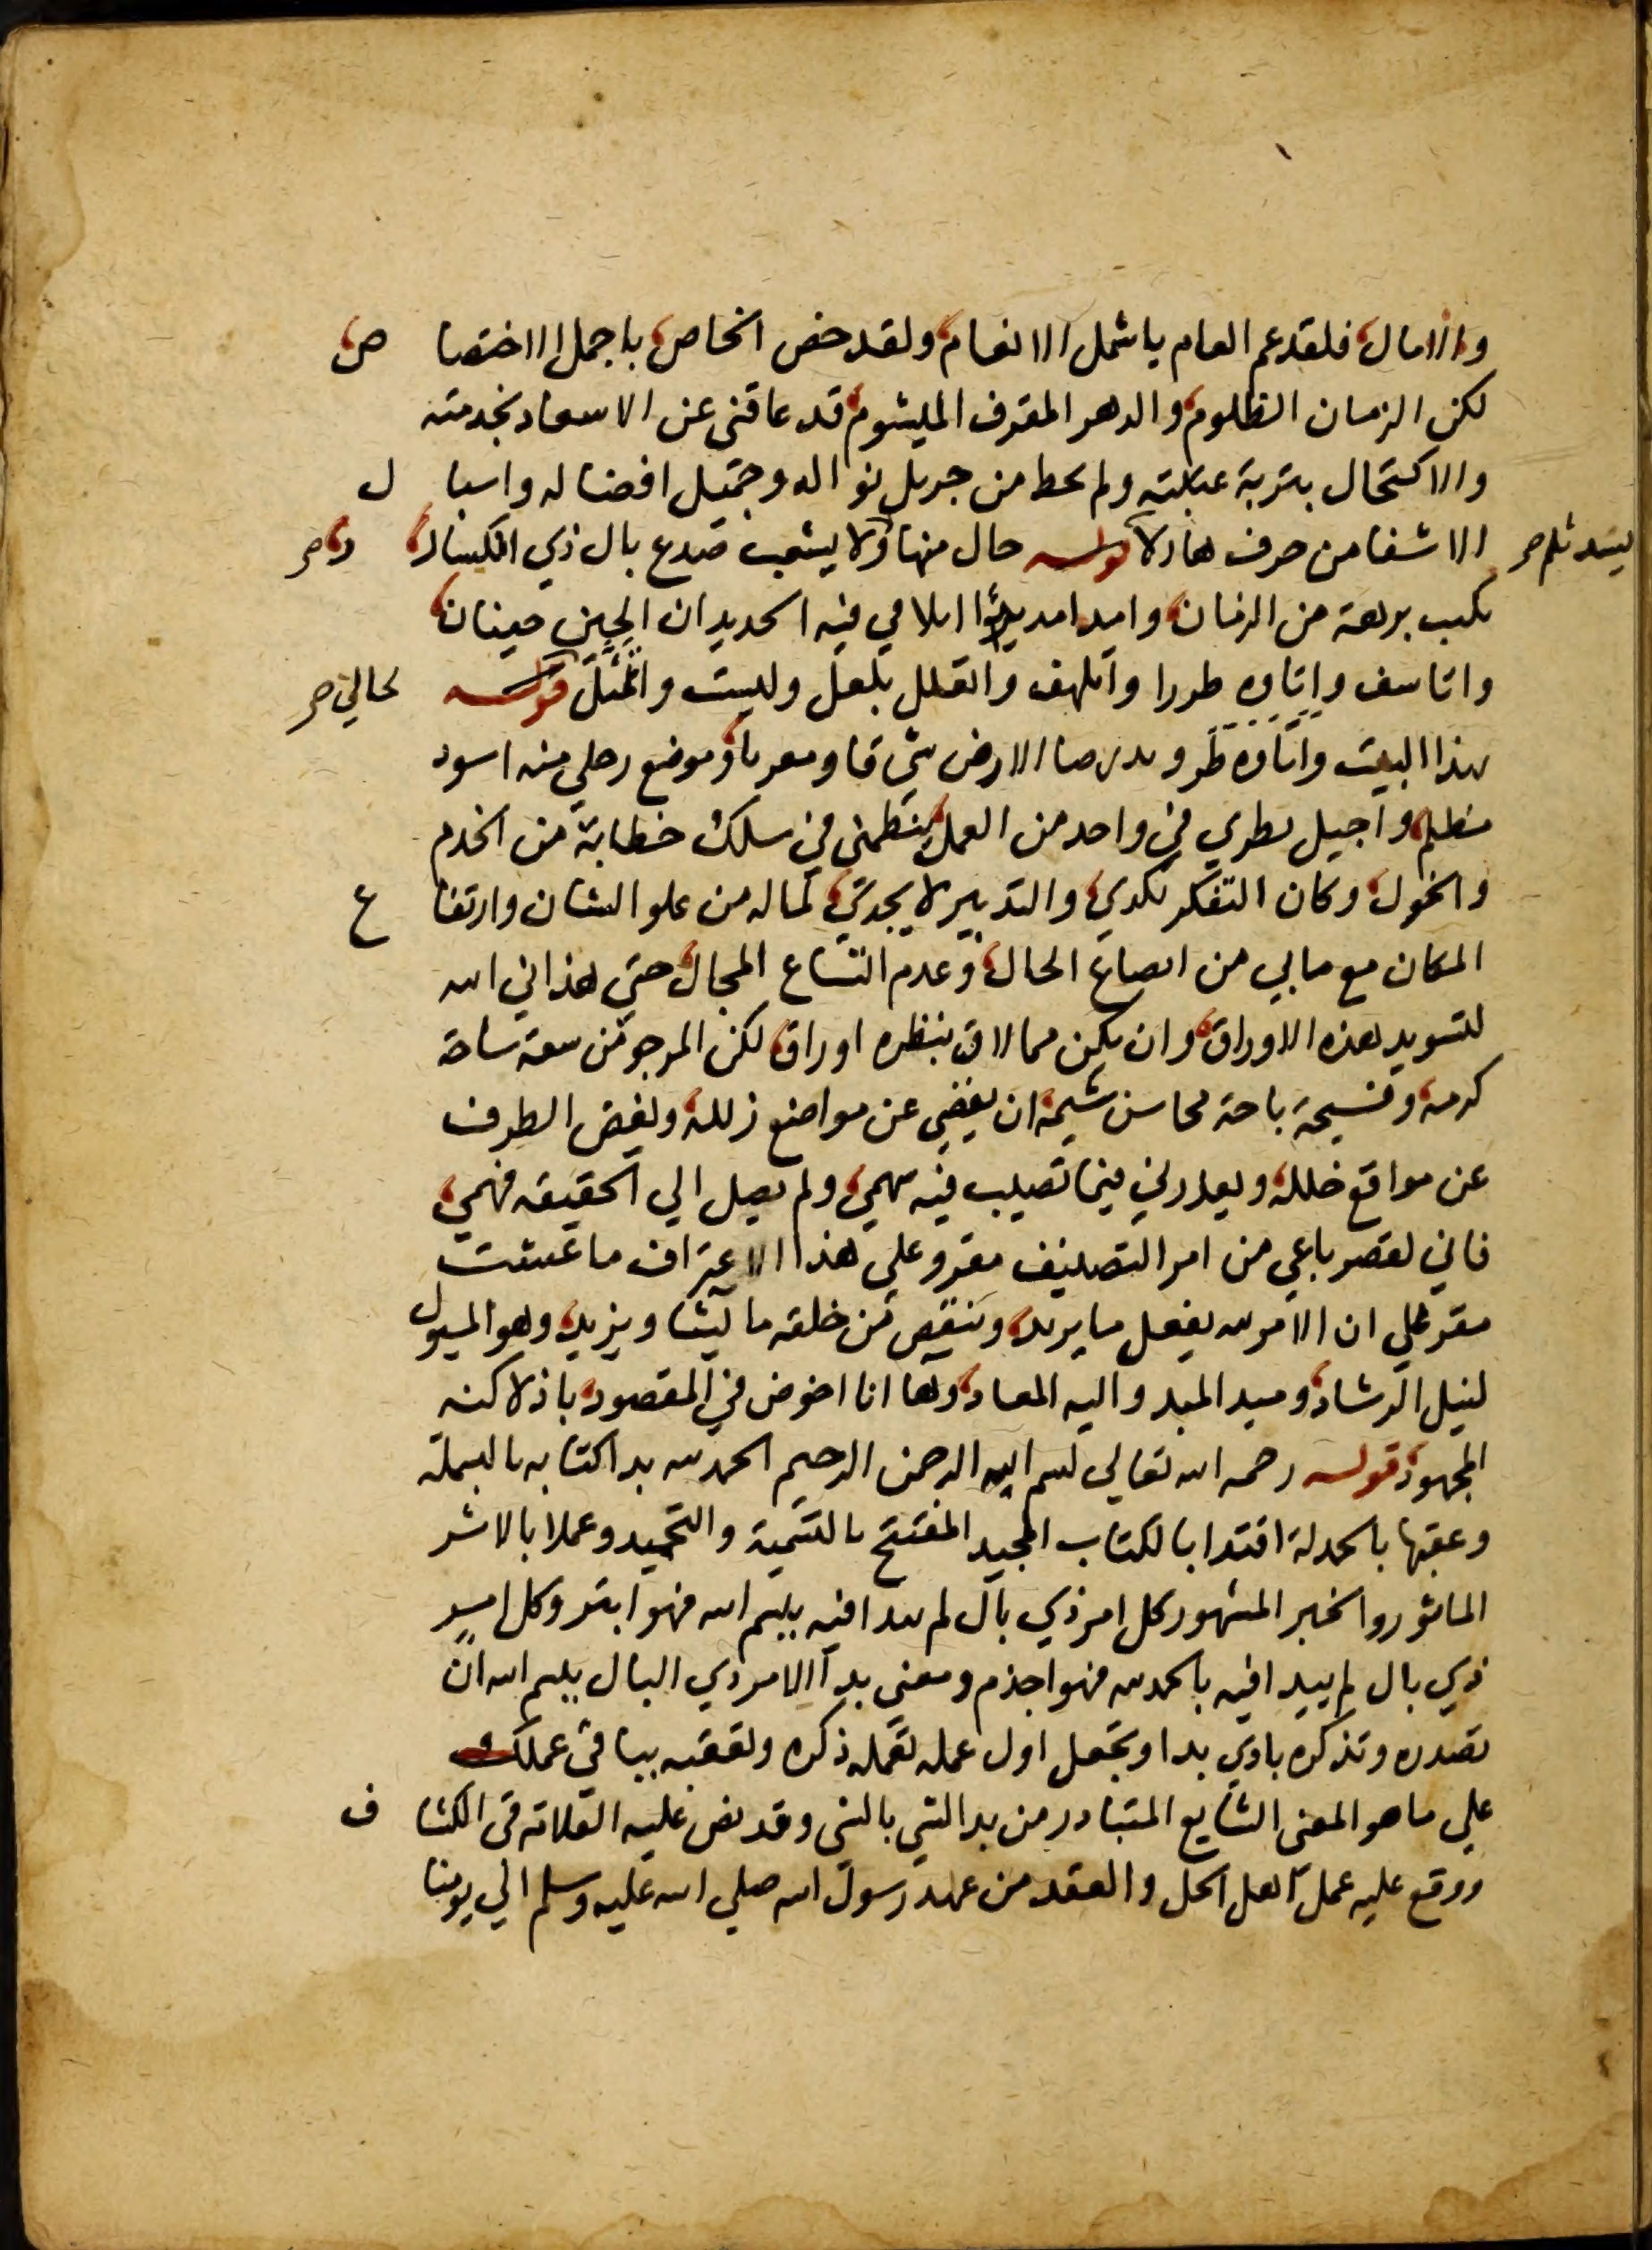 والامال فلقد عم العام باشمل الانعام ولقد خص الخاص باجمل الاختصاص
لكن الزمان الظلوم والدهر المقرف المليشوم قد عاقنى عن الاسعاد بخدمته
والاكتحال بتربة عتبته ولم يحط من جريل نواله وجميل افضاله واسبال
الا شفا من حرف هار لا يسد ثلم قوله حال منها ولا يشعب صدع بال ذي انكسار
بكيب برهة من الزمان وامد امديدا ابلا في فيه الحديدان الحين حينان
واتاسف واتاوه طورا واتلهف واتعلل بلعل وليت واتمثل قوله لحالي
بهذا البيت واتاوه الارض شرقا ومغربا وموضع رحلي منه اسود
مظلم واجيل نظري في واحد من العمل ينظمني في سلك خطابة من الخدم
والخول وكان التفكر يكدي والتدبير لا يجدي لما له من علو الشان وارتفاع
المكان مع ما بي من اتصاع الحال وعدم اتساع المجال حتي هداني الله
لتسويد هذه الاوراق وان يكن مما لاق بنظره اوراق لكن المرجو من سعة ساحة
كرمه وفسيحة باحة محاسن شيمه ان يغضي عن مواضع زلله ويغض الطرف
عن مواقع خلله ويعذرني فيما تصيب فيه سهمي ولم يصل الي الحقيقه فهمي
فاني لقصر باعي من امر التصنيف مقر وعلي هذا الاعتراف ما عشت
مقر علي ان الامر لله يفعل ما يريد وينقص من خلقه ما يشا ويزيد وهو المسيول
لنيل الرشاد ومبد المبد واليه المعاد وها انا اخوض في المقصود باذلا كنه
المجهود قوله رحمه الله تعالي بسم الله الرحمن الرحيم الحمد لله بدا كتابه بالبسملة
وعقبها بالحمدلة اقتدا بالكتاب المجيد المفتتح بالتسمية والتحميد وعملا بالاثر
الماثور والخبر المشهور كل امر ذي بال لم يبدا فيه ببسم الله فهو ابتر وكل امر
ذي بال لم يبدا فيه بالحمد لله فهو اجذم ومعني بدا الامر ذي البال ببسم الله ان
تصدره وتذكره بادي بدا وتجعل اول عمله ذكره وتعقبه بباقي عملك
علي ما هو المعني الشايع المتبادر من بدا الشي بالشي وقد نص عليه العلامة في الكشاف
ووقع عليه عمل اهل الحل والعقد من عهد رسول الله صلي الله عليه وسلم الي يومنا